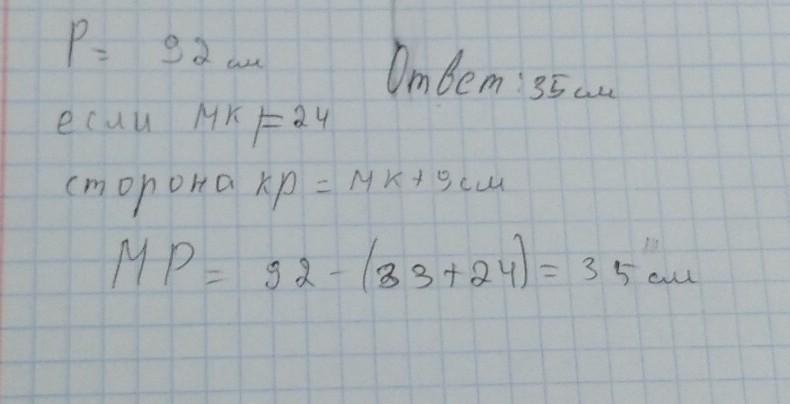 P = 92 см
Ответ: 35 см
если МК = 24
сторона КР = МК + 9 см
МР = 92 - (33 + 24) = 35 см